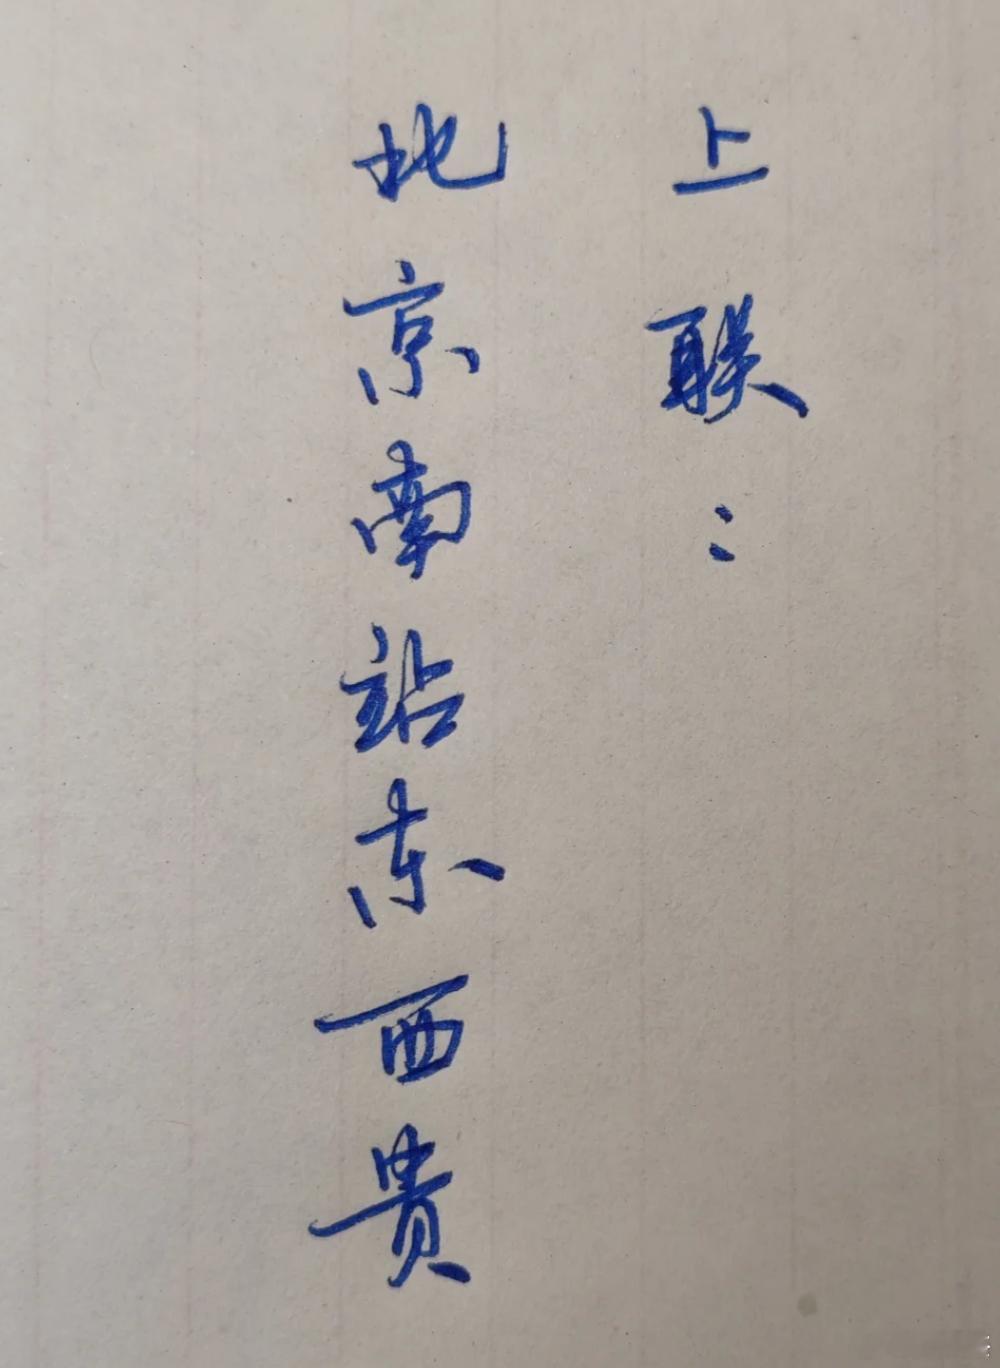 上联：
北京南站东西贵